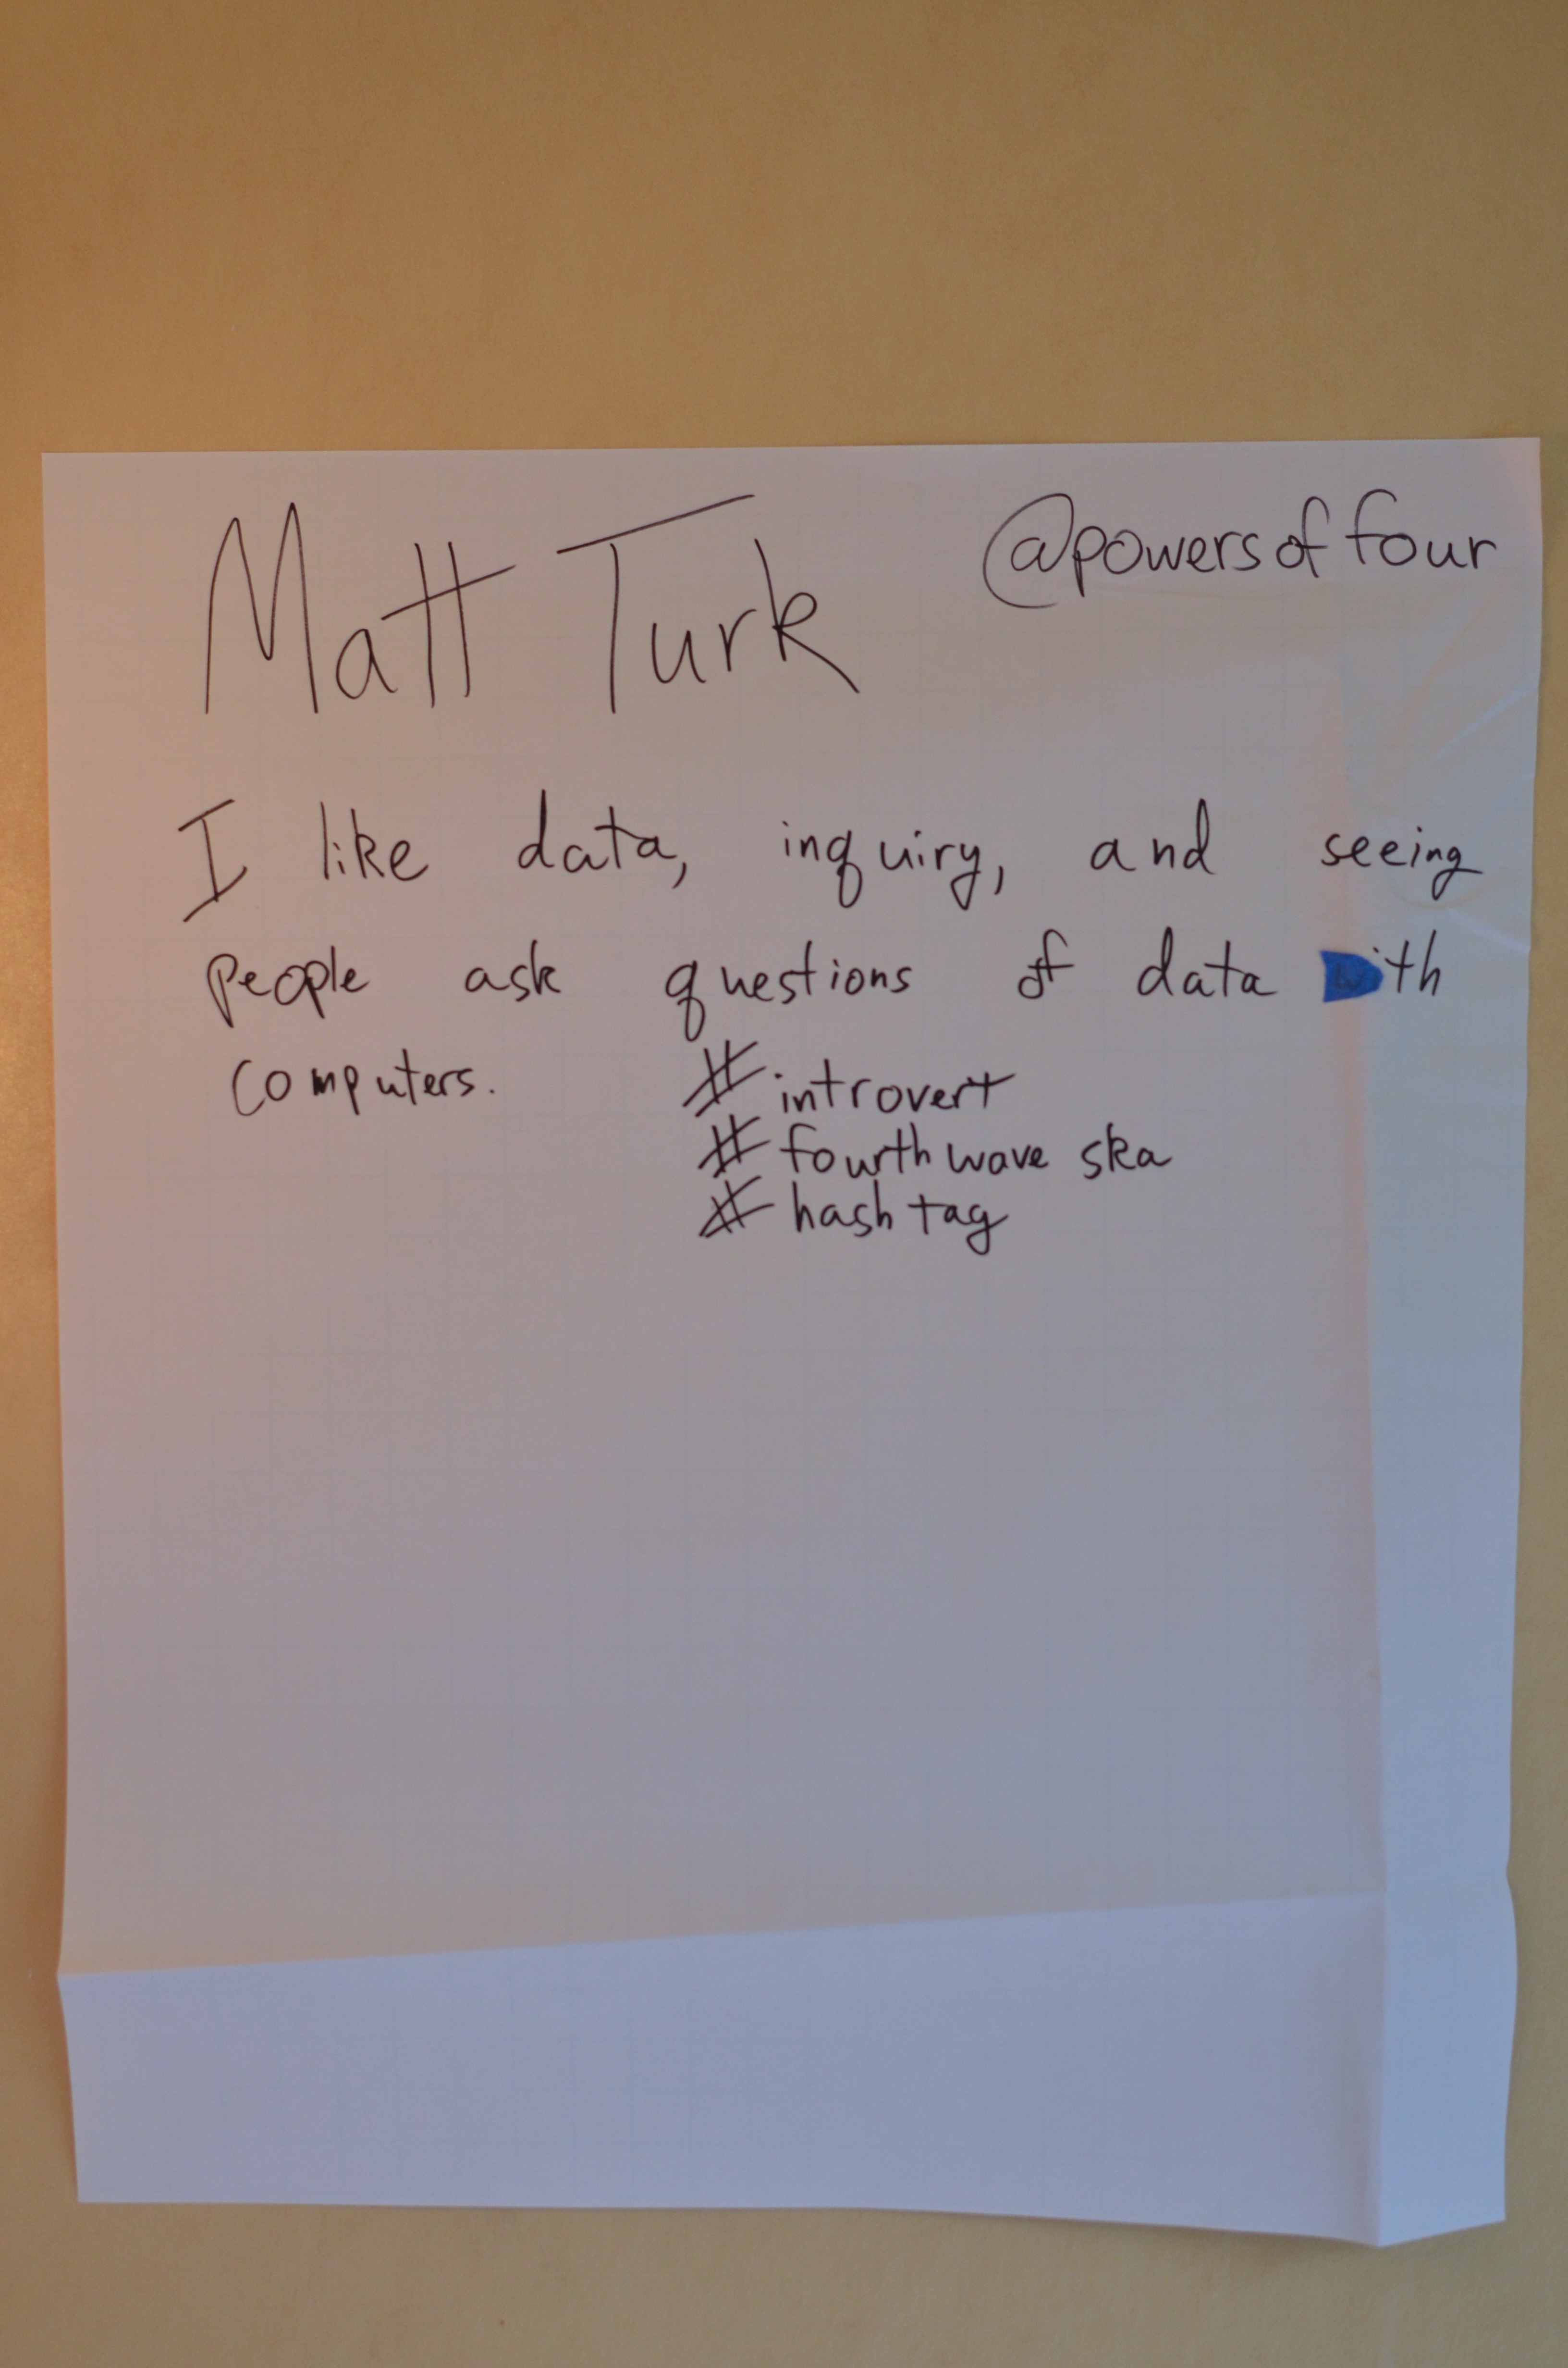 Matt Turk @powersoffour
I like data, inquiry, and seeing
people ask questions of data with
computers.
#introvert
#fourthwave ska
#hashtag